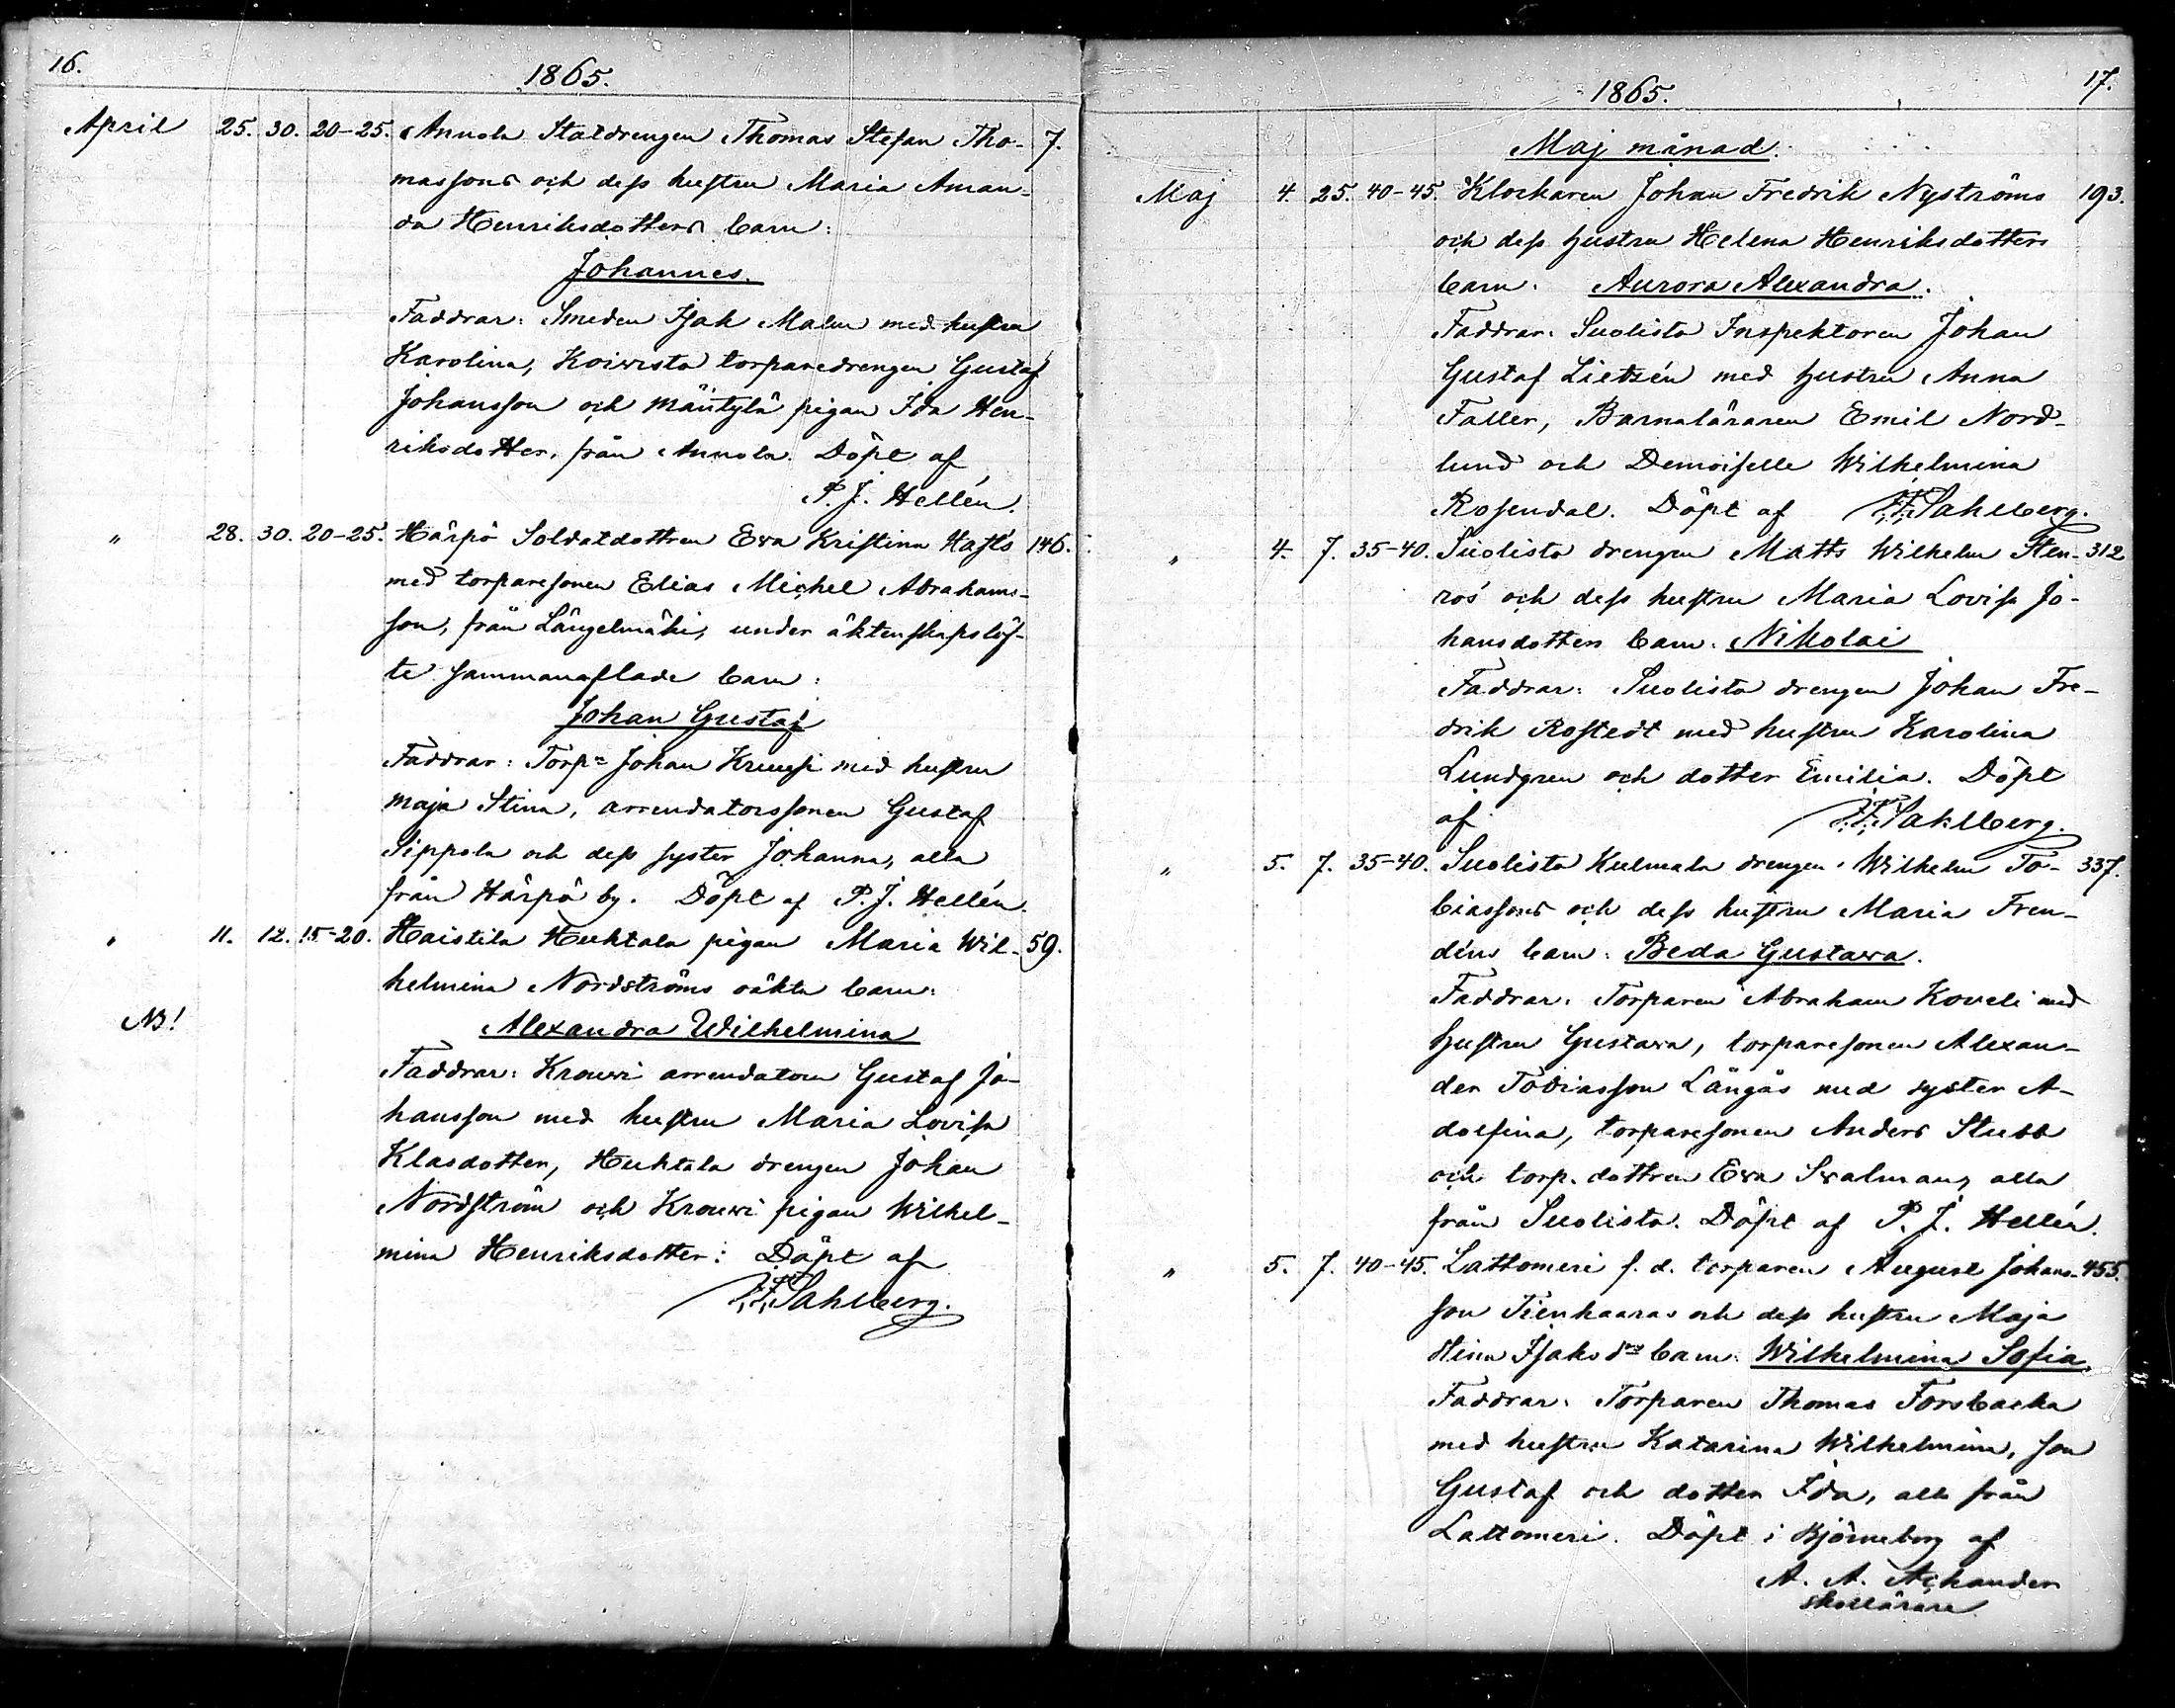 16.
1865.
April 25. 30. 20-25. Annola Statdrengen Thomas Stefan Tho- 7.
massons och dess hustru Maria Aman-
da Henriksdotters barn:
Johannes.
Faddrar: Smeden Isak Malm med hustru
Karolina, Koivisto torparedrengen Gustaf
Johansson och Mäntylä pigan Ida Hen-
riksdotter, från Annola. Döpt af
P. J. Hellén.
" 28. 30. 20-25. Härpö Soldatdottren Eva Kristina Hafts 146.
med torparesonen Elias Michel Abrahams-
son, från Längelmäki, under äktenskapslöf-
te sammanaflade barn:
Johan Gustaf
Faddrar: Torp:n Johan Kruusi med hustru
Maja Stina, arrendatorssonen Gustaf
Sippola och dess syster Johanna, alla
från Härpö by. Döpt af P. J. Hellén.
" 11. 12. 15-20. Haistila Huhtala pigan Maria Wil- 59.
helmina Nordströms oäkta barn:
NB! Alexandra Wilhelmina
Faddrar: Krouvi arrendatorn Gustaf Jo-
hansson med hustru Maria Lovisa
Klasdotter, Huhtala drengen Johan
Nordström och Krouvi pigan Wilhel-
mina Henriksdotter: Döpt af
Sahlberg.
1865. 17.
Maj månad.
Maj 4. 25. 40-45. Klockaren Johan Fredrik Nyströms 193.
och dess hustru Helena Henriksdotters
barn: Aurora Alexandra.
Faddrar: Suolisto Inspektoren Johan
Gustaf Lietzén med hustru Anna
Faller, Barnaläraren Emil Nord-
lund och Demoiselle Wilhelmina
Rosendal. Döpt af Sahlberg.
" 4. 7. 35-40. Suolisto drengen Matts Wilhelm Sten- 312
ros' och dess hustru Maria Lovisa Jo-
hansdotters barn: Nikolai
Faddrar: Suolisto drengen Johan Fre-
drik Rostedt med hustru Karolina
Lundgren och dotter Emilia. Döpt
af Sahlberg.
" 5. 7. 35-40. Suolisto Kulmala drengen Wilhelm To- 337.
biassons och dess hustru Maria Fren-
déns barn: Beda Gustava.
Faddrar: Torparen Abraham Koveli med
hustru Gustava, torparesonen Alexan-
der Tobiasson Långås med syster A-
dolfina, torparesonen Anders Stubb
och torp. dottren Eva Svalman, alla
från Suolisto. Döpt af P. J. Hellén.
" 5. 7. 40-45. Lattomeri f. d. torparen August Johans- 455.
son Tienhaaras och dess hustru Maja
Stina Isaks d:rs barn: Wilhelmina Sofia.
Faddrar: Torparen Thomas Forsbacka
med hustru Katarina Wilhelmina, son
Gustaf och dotter Ida, alla från
Lattomeri. Döpt i Björneborg af
A. A. Achander
skollärare.